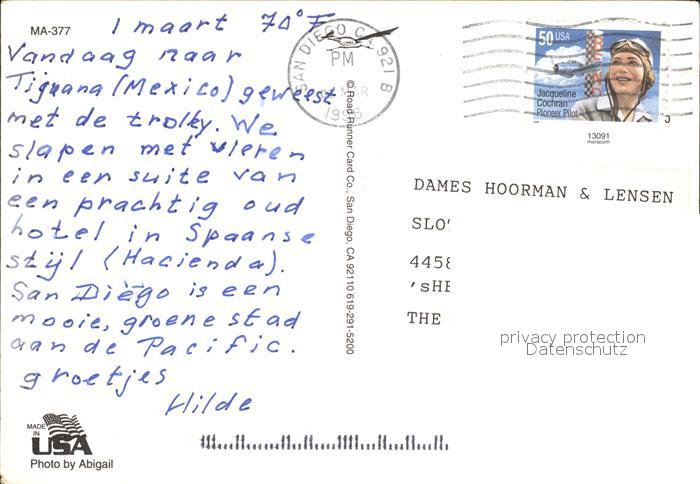 MA-377
1 maart 70° F
Vandaag naar
Tiguana (Mexico) geweest
met de trolly. We
slapen met vieren
in een suite van
een prachtig oud
hotel in Spaanse
stijl (Hacienda).
San Diego is een
mooie, groene stad
aan de Pacific.
groetjes
Hilde
MADE
IN
USA
Photo by Abigail
© Road Runner Card Co., San Diego, CA 92110 619-291-5200
SAN DIEGO CA 921
PM
MAR
1996
50 USA
Jacqueline
Cochran
Pioneer Pilot
13091
DAMES HOORMAN & LENSEN
SLO
4458
'sHE
THE
privacy protection
Datenschutz